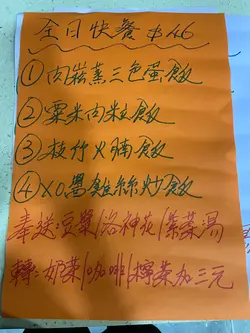 全日快餐 $46
①肉崧蒸三色蛋飯
②粟米肉粒飯
③枝竹火腩飯
④XO醬雞絲炒飯
奉送豆漿/洛神花/紫菜湯
轉:奶茶/咖啡/檸茶加三元